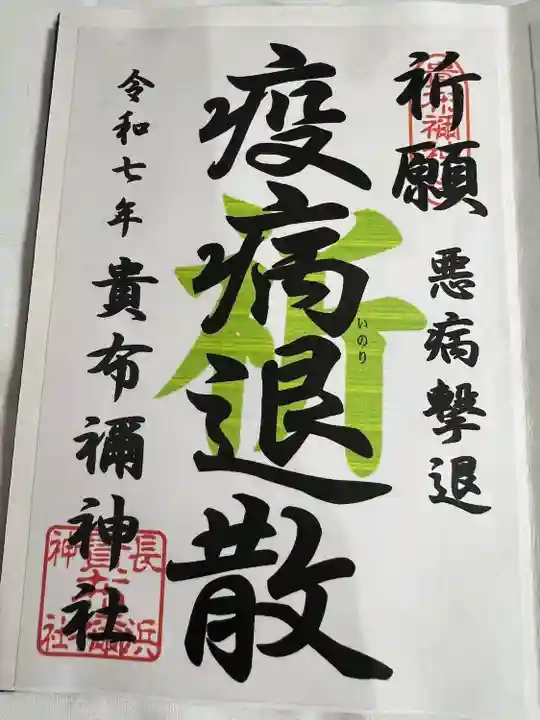 祈願
悪病撃退
疫病退散
祈
いのり
令和七年
貴布禰神社
長浜
貴布禰
神社